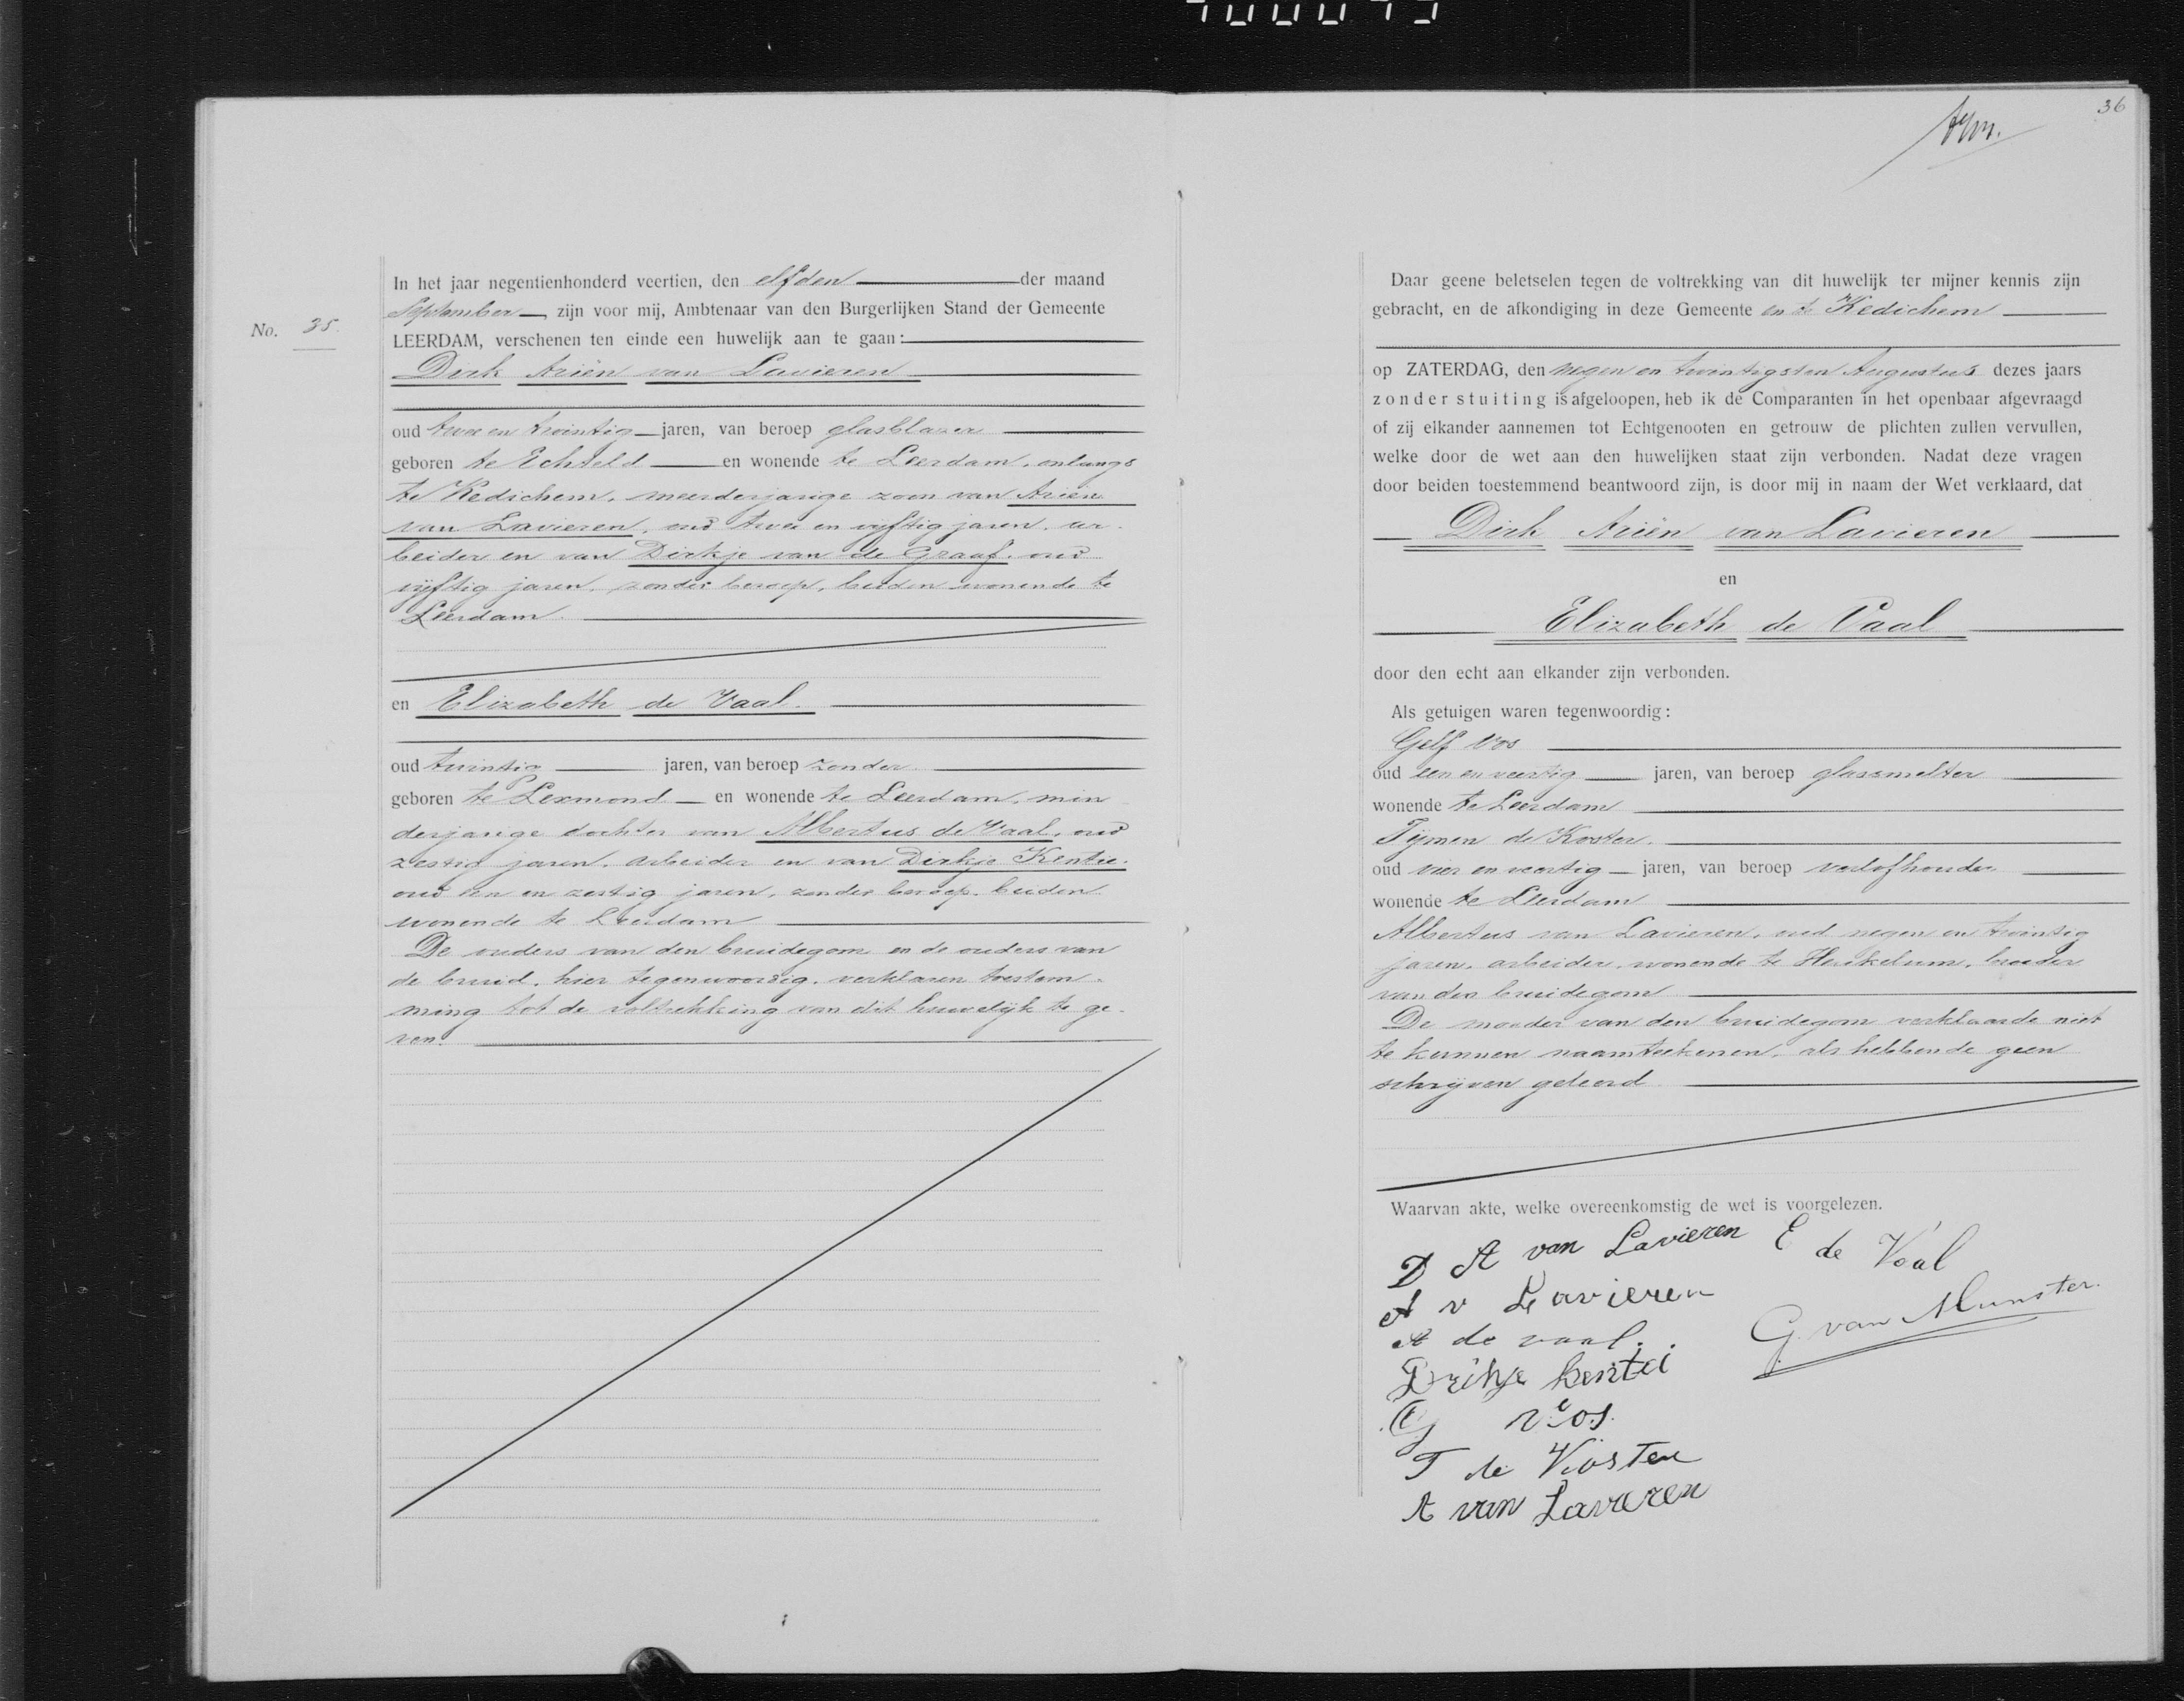 36
No. 35.
In het jaar negentienhonderd veertien, den elfden der maand
September zijn voor mij, Ambtenaar van den Burgerlijken Stand der Gemeente
LEERDAM, verschenen ten einde een huwelijk aan te gaan:
Dirk Ariën van Lavieren
oud twee en twintig jaren, van beroep glasblazer
geboren te Echteld en wonende te Leerdam, onlangs
te Kedichem, meerderjarige zoon van Ariën
van Lavieren, oud twee en vijftig jaren, ar-
beider en van Dirkje van de Graaf, oud
vijftig jaren, zonder beroep, beiden wonende te
Leerdam.
en Elizabeth de Vaal.
oud twintig jaren, van beroep zonder
geboren te Lexmond en wonende te Leerdam, min
derjarige dochter van Albertus de Vaal, oud
zestig jaren, arbeider en van Dirkje Kentie.
oud een en zestig jaren, zonder beroep, beiden
wonende te Leerdam
De ouders van den bruidegom en de ouders van
de bruid, hier tegenwoordig, verklaren toestem-
ming tot de voltrekking van dit huwelijk te ge-
ven.
Daar geene beletselen tegen de voltrekking van dit huwelijk ter mijner kennis zijn
gebracht, en de afkondiging in deze Gemeente en te Kedichem
op ZATERDAG, den negen en twintigsten Augustus dezes jaars
zonder stuiting is afgeloopen, heb ik de Comparanten in het openbaar afgevraagd
of zij elkander aannemen tot Echtgenooten en getrouw de plichten zullen vervullen,
welke door de wet aan den huwelijken staat zijn verbonden. Nadat deze vragen
door beiden toestemmend beantwoord zijn, is door mij in naam der Wet verklaard, dat
Dirk Ariën van Lavieren
en
Elizabeth de Vaal
door den echt aan elkander zijn verbonden.
Als getuigen waren tegenwoordig:
Gelf Vos
oud een en veertig jaren, van beroep glassmelter
wonende te Leerdam
Tijmen de Koster.
oud vier en veertig jaren, van beroep verlofhouder
wonende te Leerdam
Albertus van Lavieren, oud negen en twintig
jaren, arbeider, wonende te Heukelum, broeder
van den bruidegom
De moeder van den bruidegom verklaarde niet
te kunnen naamteekenen, als hebbende geen
schrijven geleerd
Waarvan akte, welke overeenkomstig de wet is voorgelezen.
D A van Lavieren E de Vaal
A v Lavieren
G. van Munster.
A de vaal.
Drikje kentei
G vos.
T de Koster
A van Lavieren